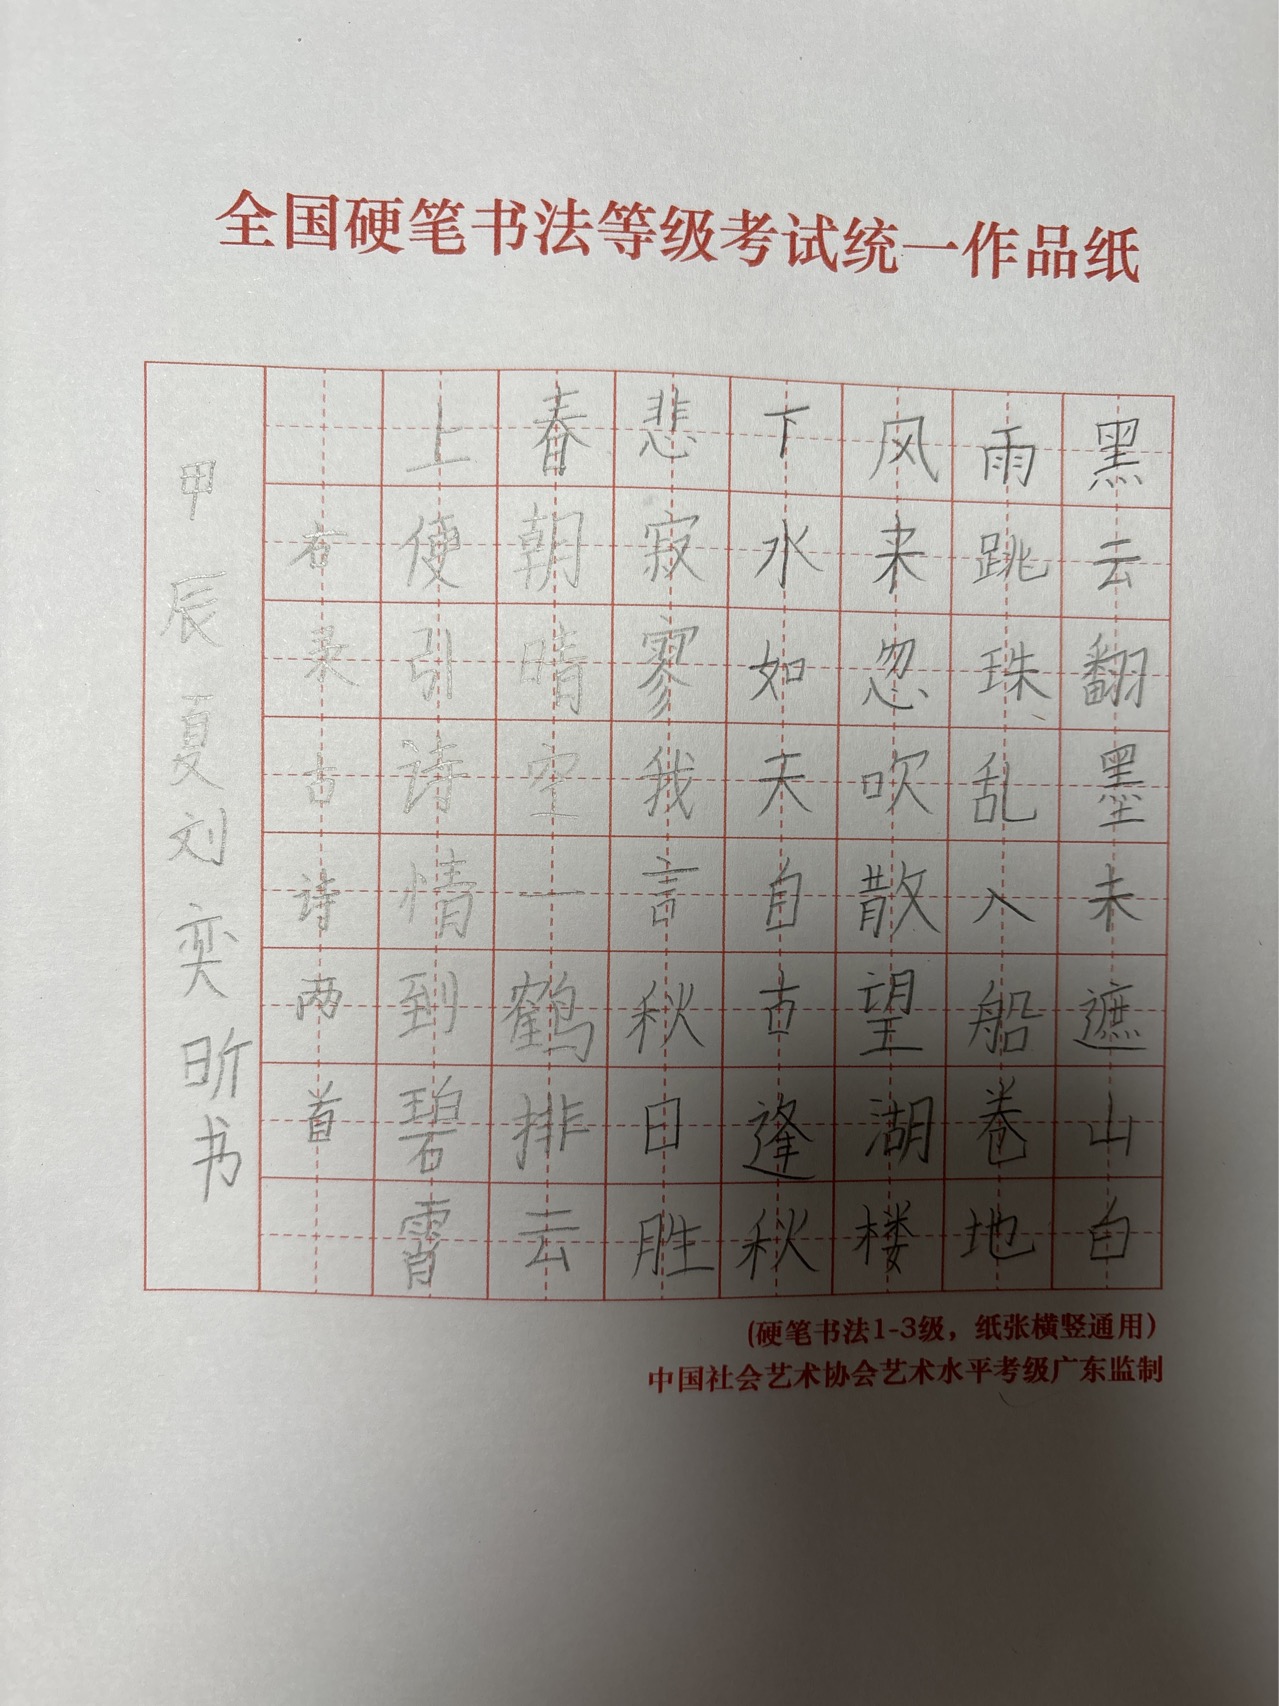 全国硬笔书法等级考试统一作品纸
黑云翻墨未遮山白
雨跳珠乱入船卷地
风来忽吹散望湖楼
下水如天自古逢秋
悲寂寥我言秋日胜
春朝晴空一鹤排云
上便引诗情到碧霄
右录古诗两首
甲辰夏刘奕昕书
(硬笔书法1-3级，纸张横竖通用)
中国社会艺术协会艺术水平考级广东监制